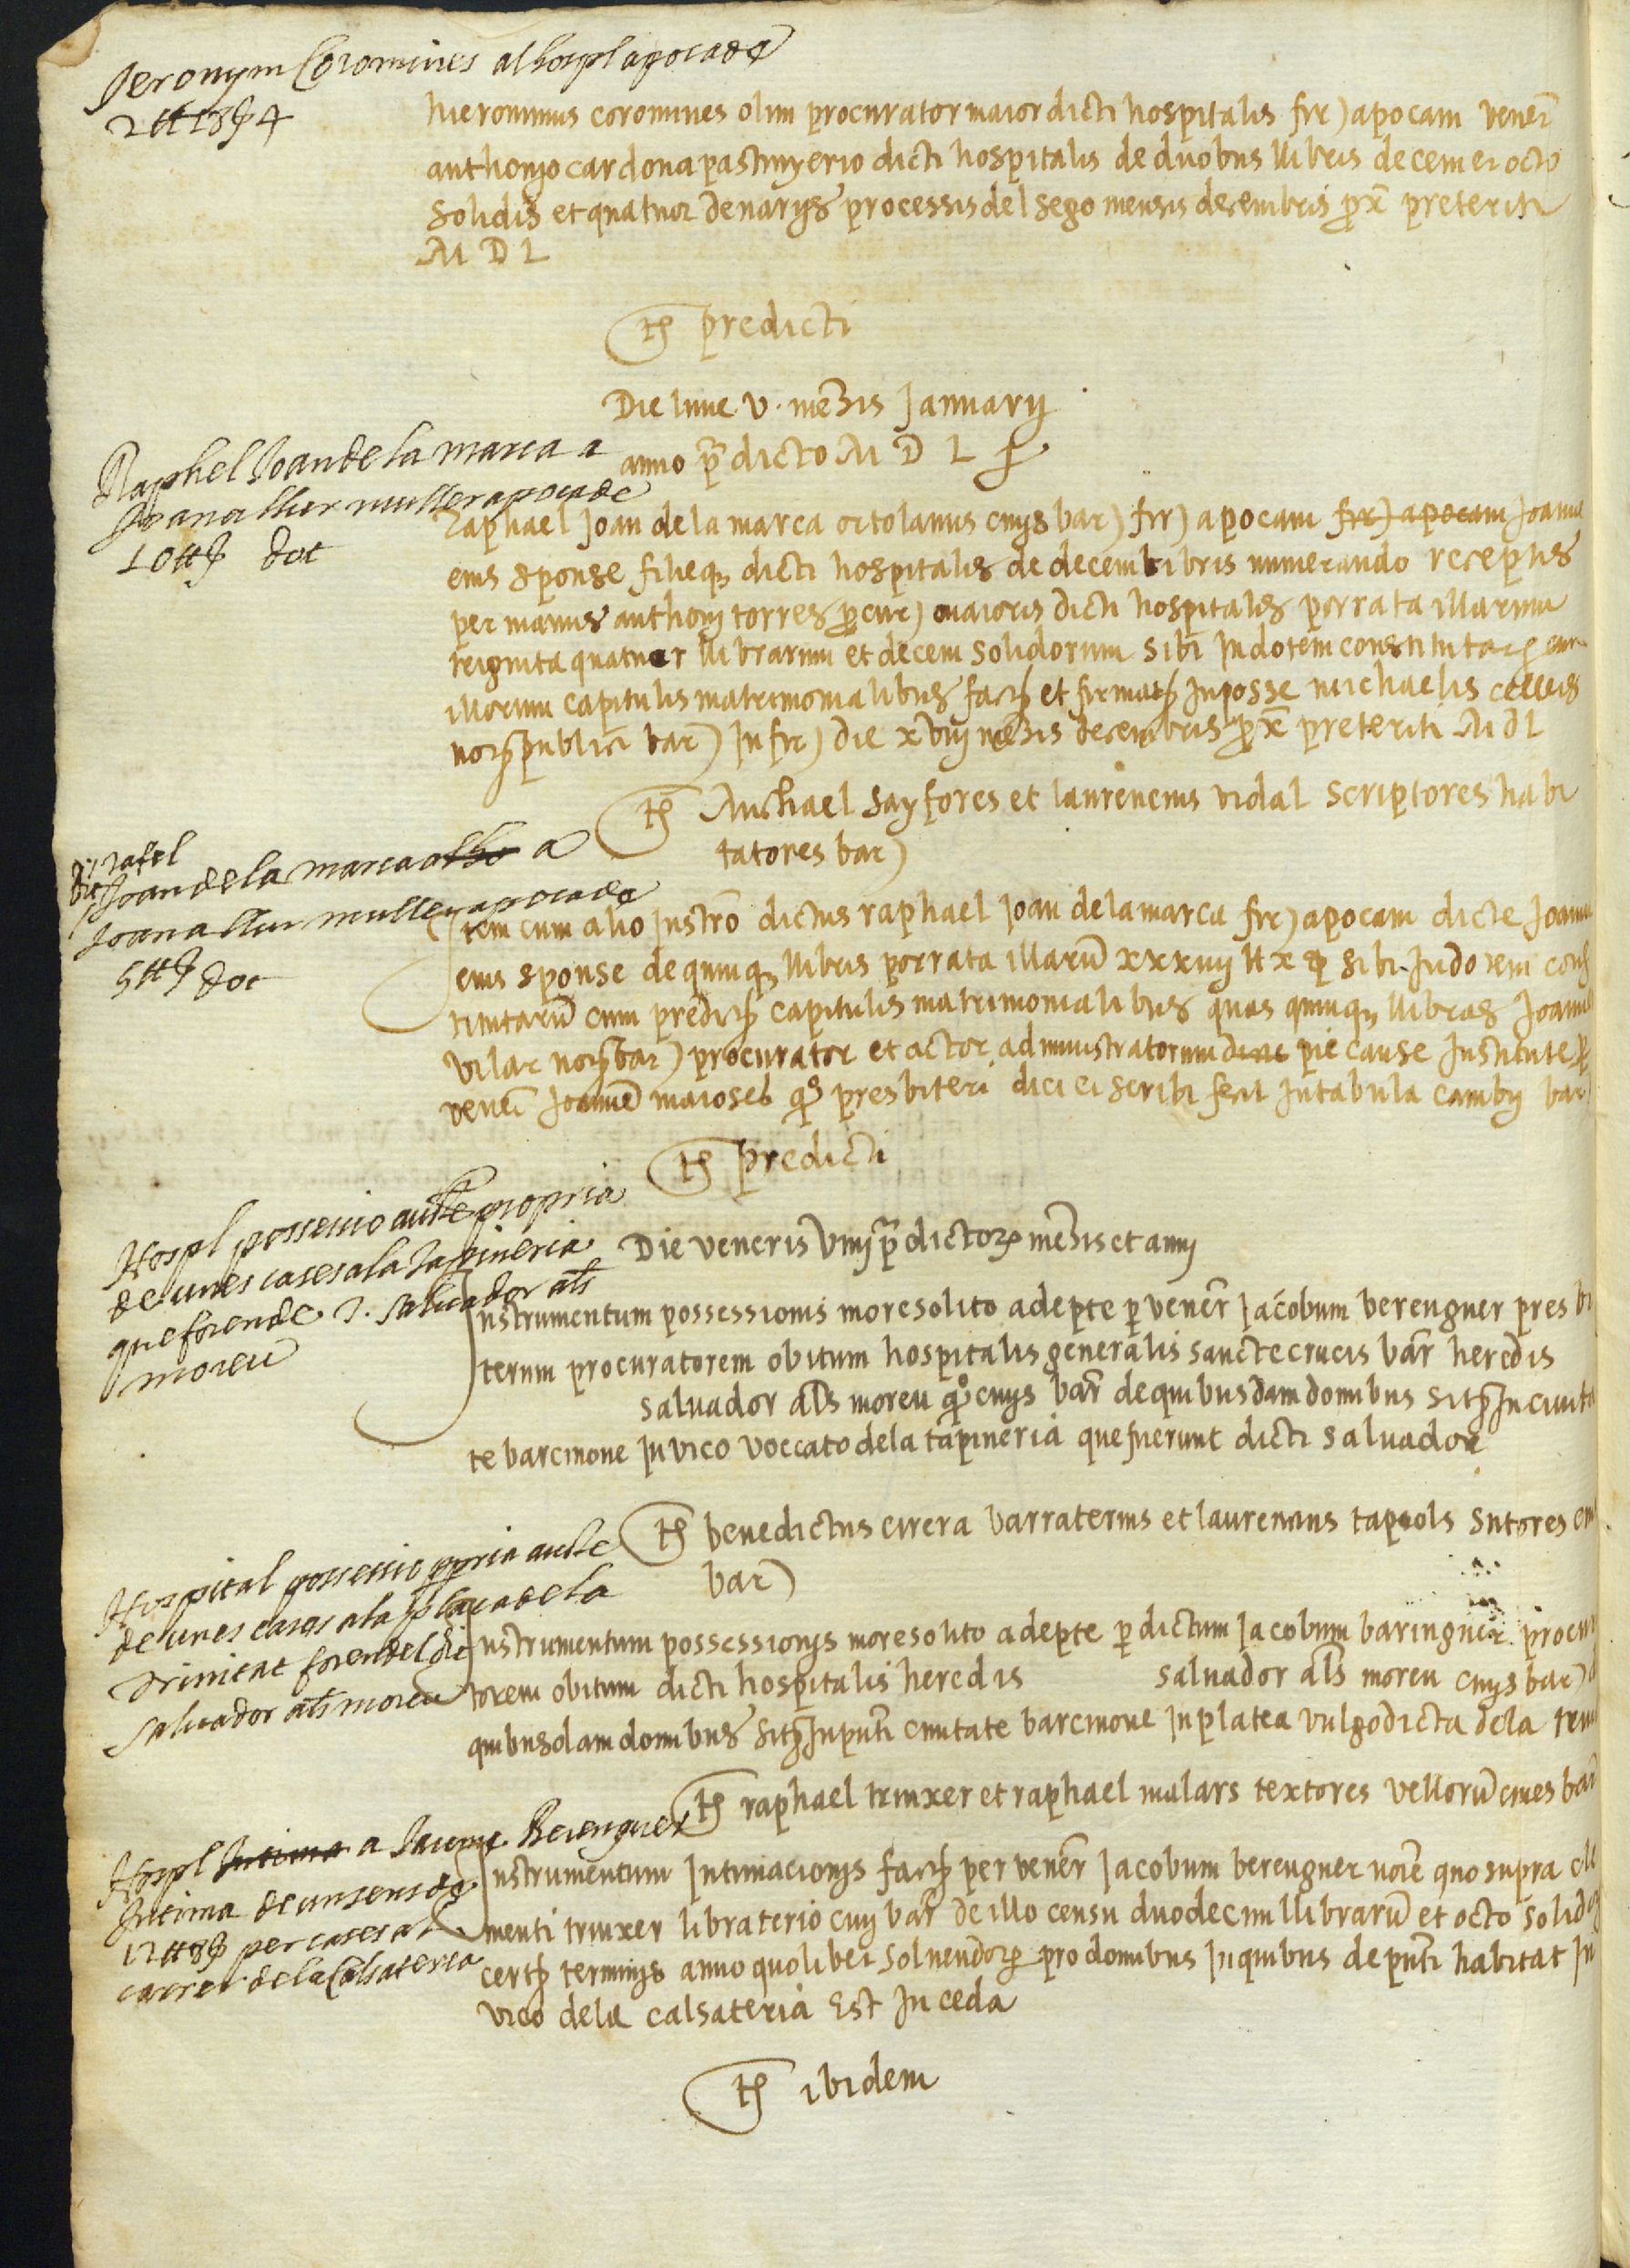 Jeronym Coromines al hospl apoca de
2 tt 18 ß 4
hieronimus coromines olim procurator maior dicti hospitalis fir) apocam vener
anthonio cardona pastinyerio dicti hospitalis de duobus llibris decem et octo
solidis et quatuor denarijs processis del sego mensis decembris prox preteriti
M D L
ts predicti
Die lune v mensis Januarij
anno predicto M D L j
Raphel Joan de la marca a
Joana llur muller apoca de
10 tt ß dot
Raphael Joan de la marca ortolanus civis bar) fir) apocam fir) apocam Joanne
eius sponse filieq dicti hospitalis de decem libris numerando receptis
per manus anthonij torres procur) maioris dicti hospitalis porrata illarum
treiginta quatuor llibrarum et decem solidorum sibi in dotem constitutar cum
illorum capitulis matrimonialibus factis et firmatis in posse michaelis cellers
not publici bar) infr) die xviij mensis decembris prox preteriti M d L
ts Michael sayfores et laurencius vidal scriptores habi
tatores bar)
dit rafel
Joan de la marca olho a
Joana llur muller apoca de
5 tt ß dot
Item cum alio Instro dictus raphael Joan dela marca fir) apocam dicte Joanne
eius sponse de quinq llibris porrata illaru xxxiiij tt x ß sibi In dotem cons
titutaru cum predictis capitulis matrimonialibus quas quinq llibras Joannes
vilar not bar) procurator et actor administratorum dicte pie cause Institute per
vener Joanne maioses q° presbiteri dici et scribi fecit In tabula cambij bar
ts predicti
Die veneris viiij predictor mensis et anni
Hospl possessio aucte propria
de unes cases a la tapineria
que foren de J. salvador als
moreu
Instrumentum possessionis more solito adepte per vener Jacobum berenguer presbi
terum procuratorem obitum hospitalis generalis sancte crucis bar heredis
salvador als moreu q° civis bar de quibusdam domibus sitis In civita
te barcinone In vico voccato dela tapineria que fuerunt dicti salvador
ts benedictus cirera barraterius et laurencius tapiols sutores cives
bar)
Hospital possessio ppria aucte
de unes cases a la plaça de la
trinitat foren del dit
salvador als moreu
Instrumentum possessionis more solito adepte per dictum Jacobum baringuer procura
torem obitum dicti hospitalis heredis salvador als moreu civis bar) d
quibusdam domibus sitis In punti civitate barcinone In platea vulgo dicta dela trini
ts raphael trinxer et raphael malars textores velloru cives bar
Hospl Intima a Jaume Berenguer
Intima de un sens de
12 tt 8 ß per cases al
carrer de la Calsateria
Instrumentum Intimacionis factis per vener Jacobum berenguer noie quo supra cle
menti trinxer libraterio civi bar de illo censu duodecim llibraru et octo solidos
certis terminis anno quolibet solvendor pro domibus In quibus de punti habitat In
vico dela calsateria Est In ceda
ts ibidem